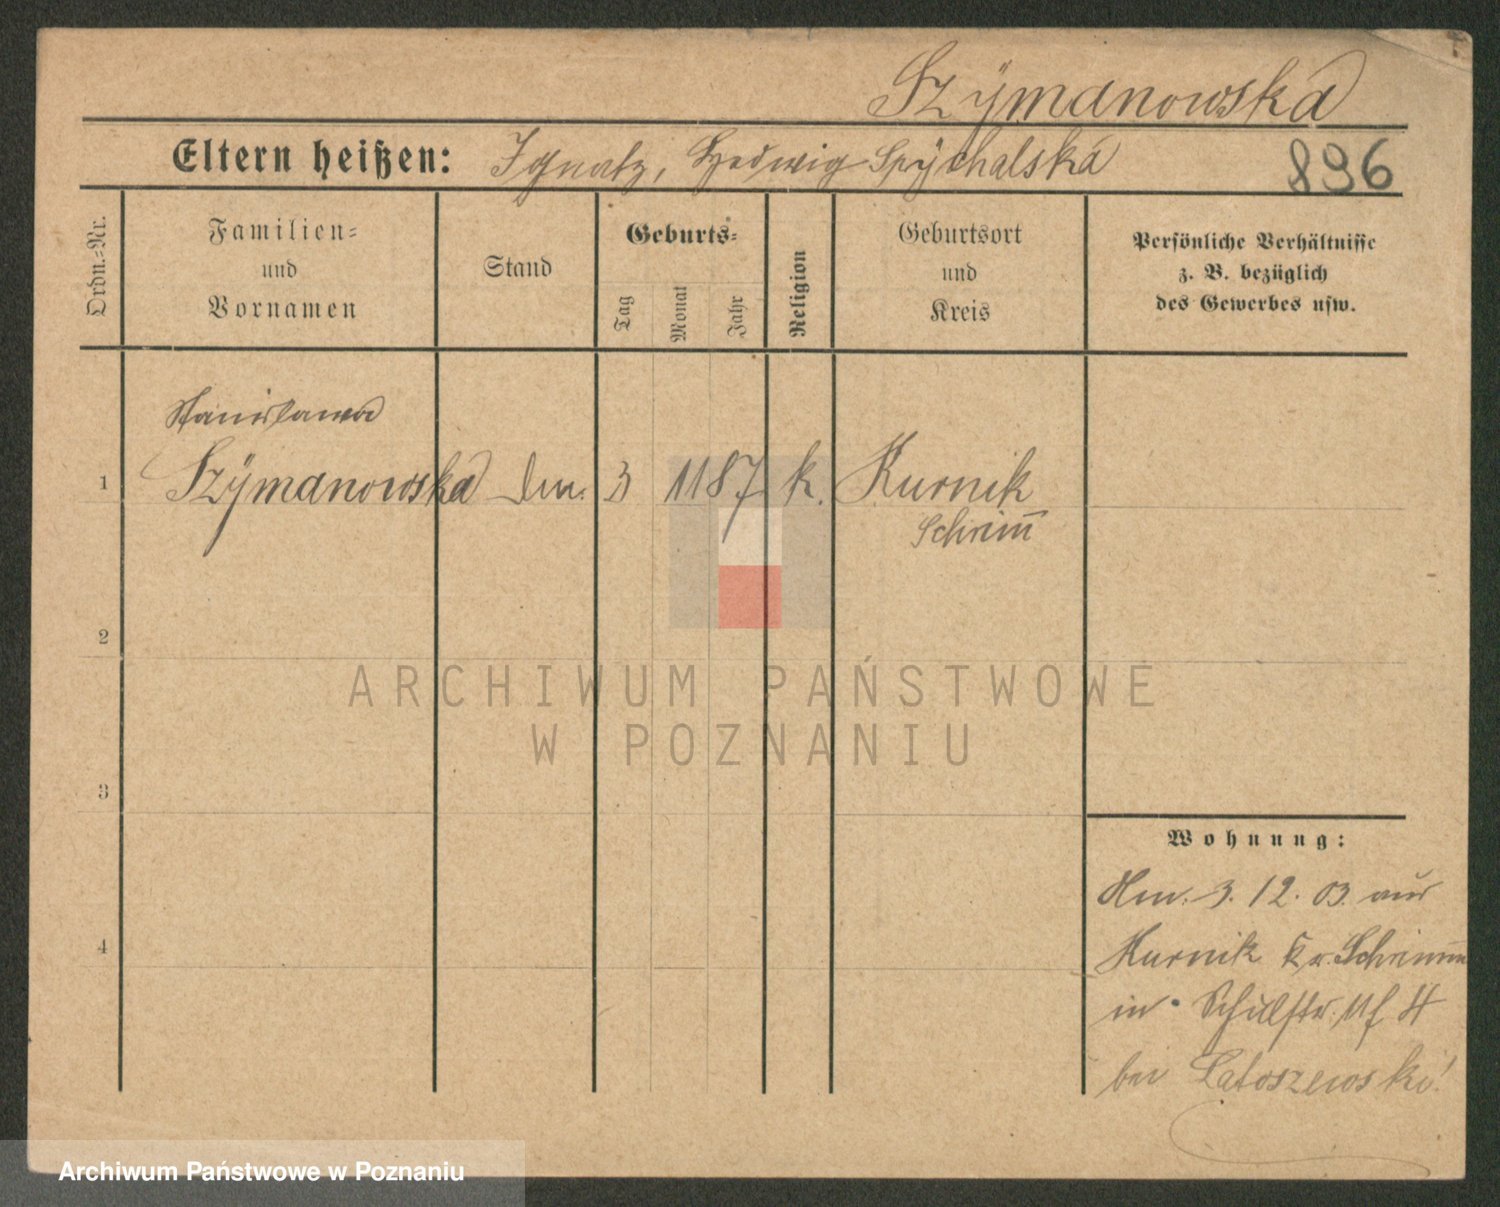 Szymanowska
Eltern heißen: Ignatz, Hedwig Spychalska
896
Ordn.-Nr.
Familien-
und
Vornamen
Stand
Geburts-
Tag
Monat
Jahr
Religion
Geburtsort
und
Kreis
Persönliche Verhältnisse
z. B. bezüglich
des Gewerbes usw.
Stanislawa
1 Szymanowska 3 11 87 k. Kurnik
Schrim̅
2
3
4
Wohnung:
3. 12. 03. aus
Kurnik Kr. Schrimm
in Schulstr. 11
bei Latoszewski!
ARCHIWUM PAŃSTWOWE
W POZNANIU
Archiwum Państwowe w Poznaniu